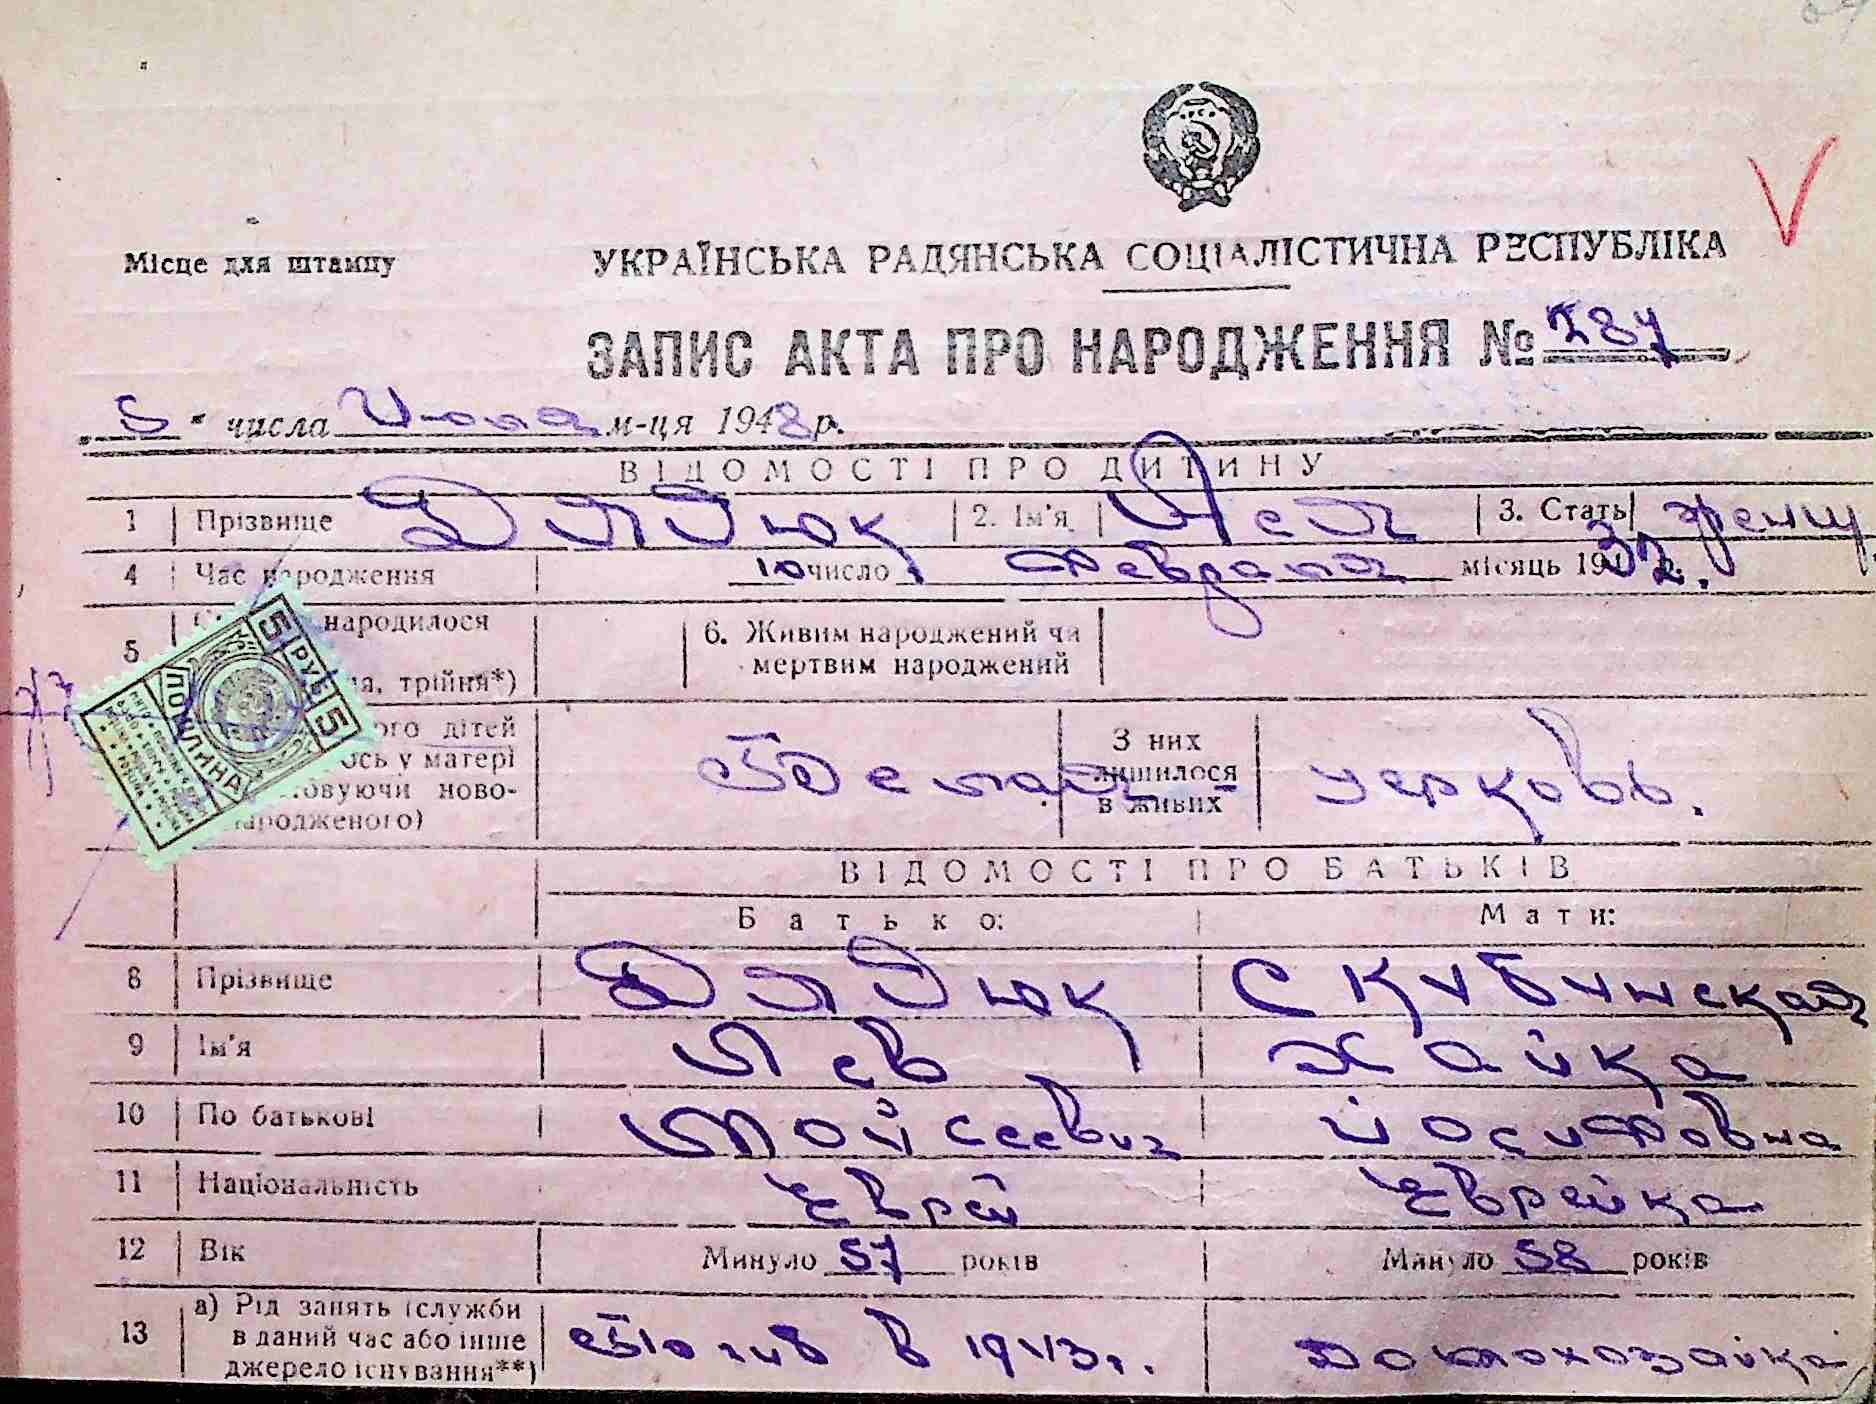 Місце для штампу
УКРАЇНСЬКА РАДЯНСЬКА СОЦІАЛІСТИЧНА РЕСПУБЛІКА
ЗАПИС АКТА ПРО НАРОДЖЕННЯ № 287
„5" числа Июля м-ця 1948 р.
ВІДОМОСТІ ПРО ДИТИНУ
1 Прізвище Дидюк 2. Ім'я 3. Стать женщ
4 Час народження 10 число февраля місяць 1932.
5 народилося 6. Живим народжений чи
трійня*) мертвим народжений
5 РУБ 5
ПОШЛИНА
дітей З них
ось у матері лишилося
овуючи ново- в живих
народженого) церковь.
ВІДОМОСТІ ПРО БАТЬКІВ
Батько: Мати:
8 Прізвище Дидюк Скубинская
9 Ім'я Лев Хайка
10 По батькові Мойсеевич Йосифовна
11 Національність Еврей Еврейка
12 Вік Минуло 57 років Минуло 58 років
13 а) Рід занять (служби
в даний час або інше
джерело існування**) в 1943 г. домохозайка